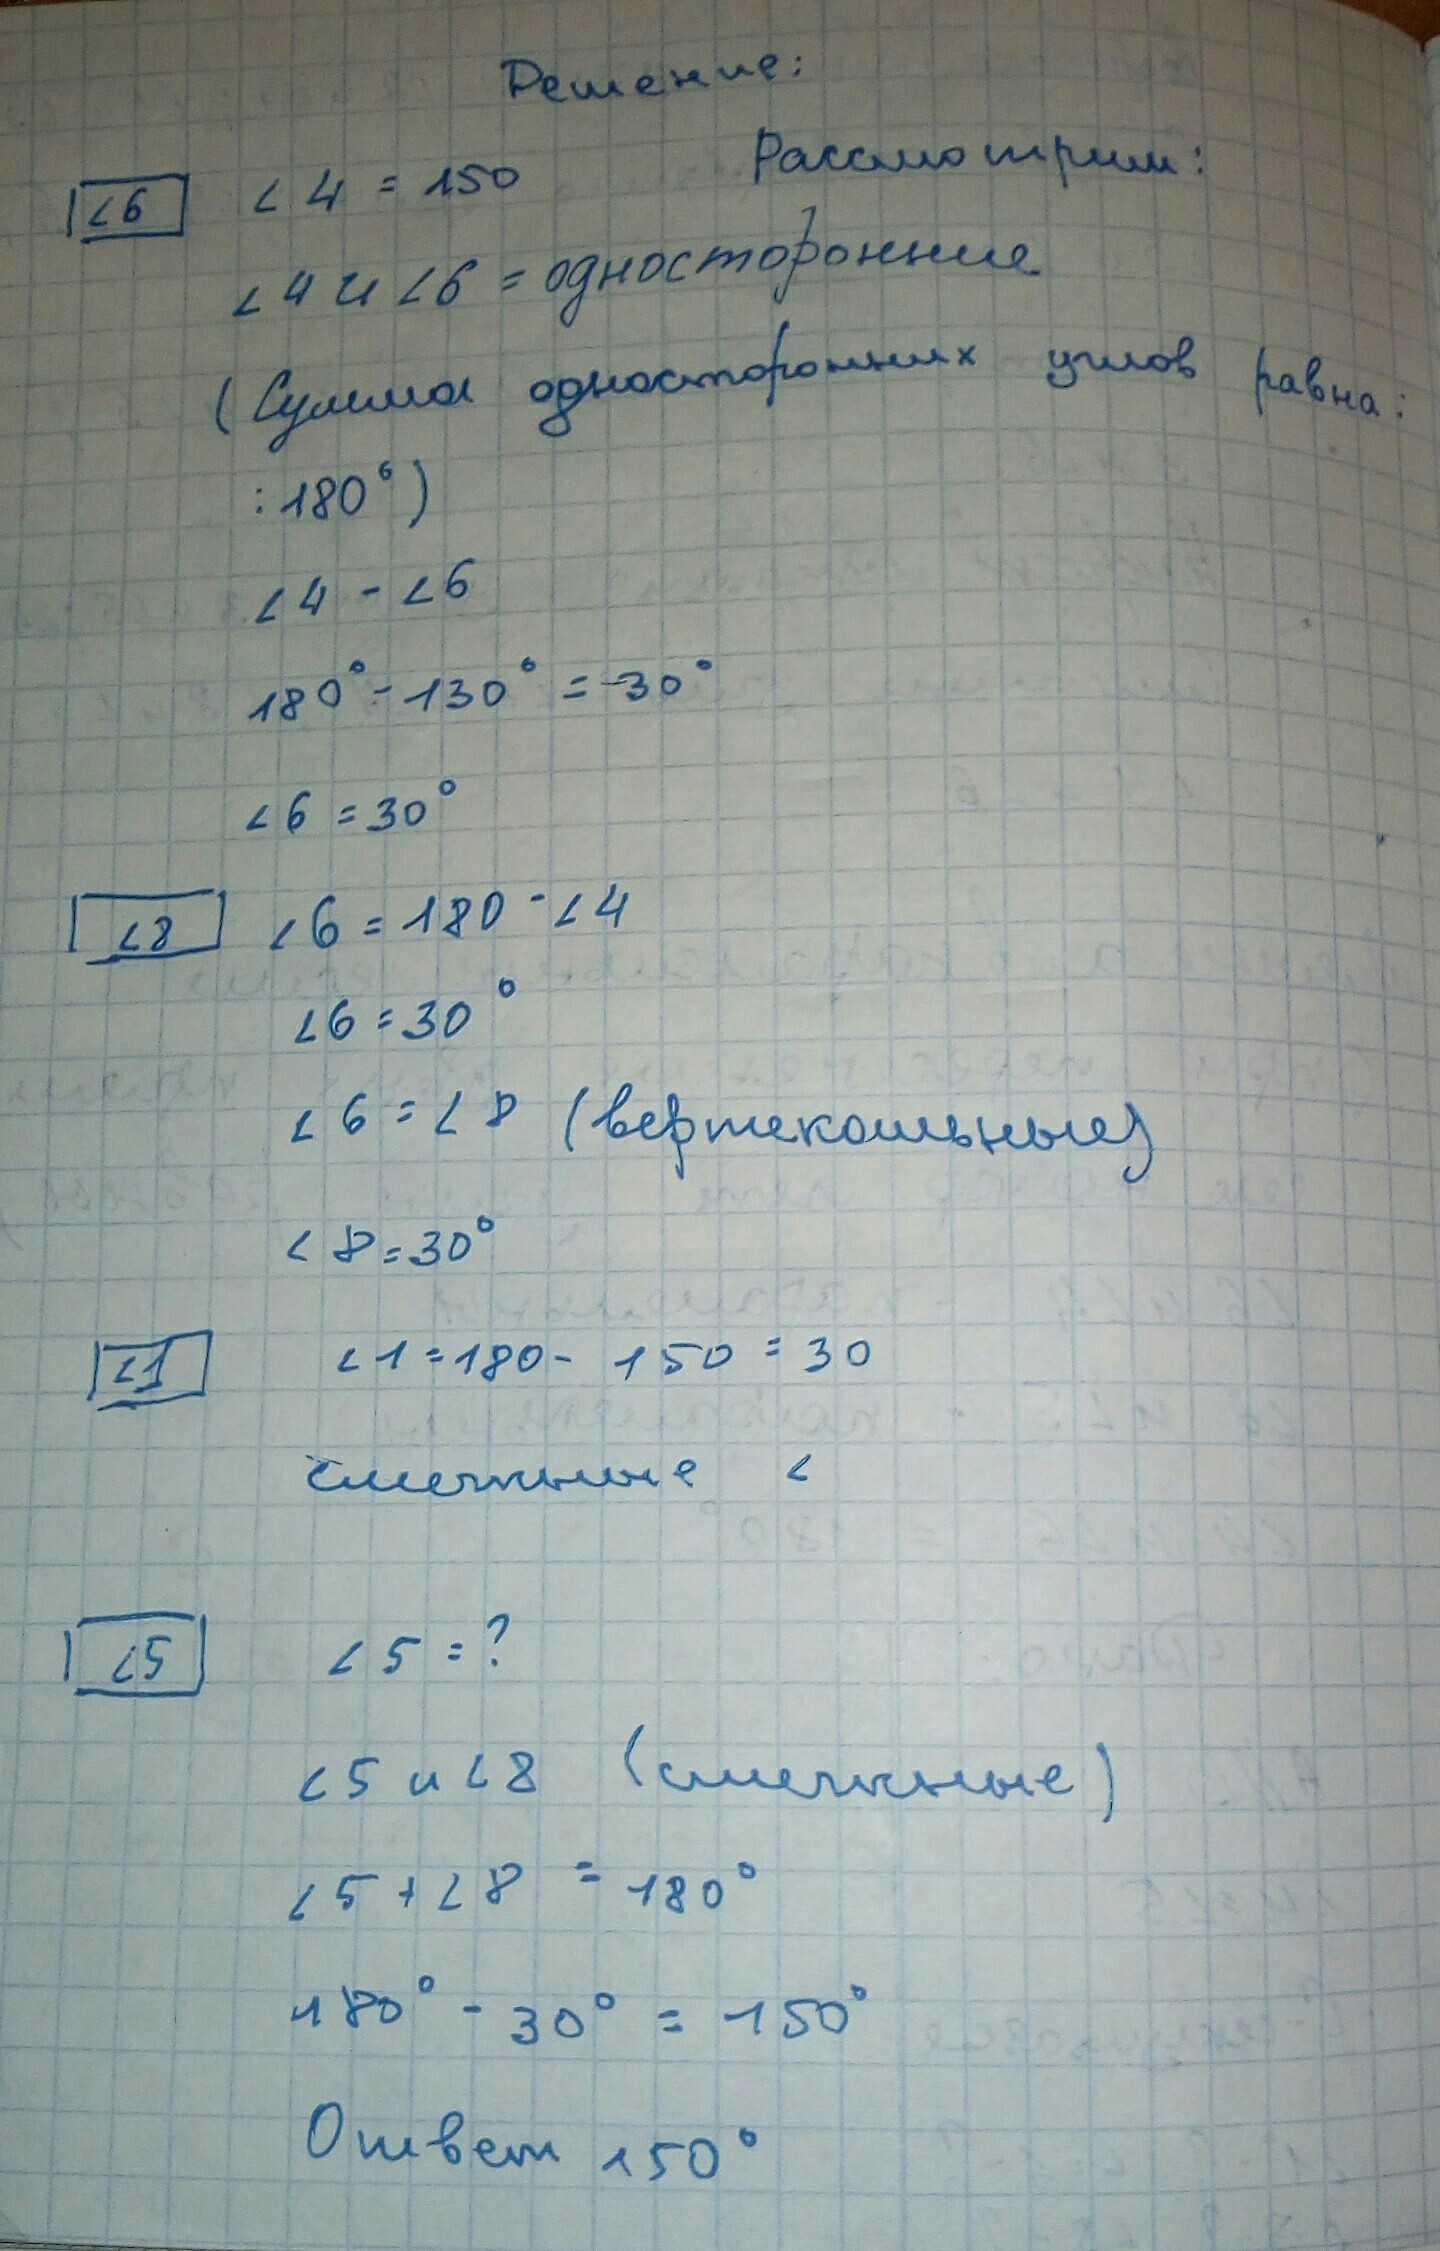 Решение:
<6 < 4 = 150 Рассмотрим:
< 4 и < 6 = односторонние
(Сумма односторонних углов равна:
: 180°)
< 4 - < 6
180° - 130° = 30°
< 6 = 30°
<8 < 6 = 180 - < 4
< 6 = 30°
< 6 = < 8 (вертекальные)
< 8 = 30°
<1 < 1 = 180 - 150 = 30
смежные <
<5 < 5 = ?
< 5 и < 8 (смежные)
< 5 + < 8 = 180°
180° - 30° = 150°
Ответ 150°